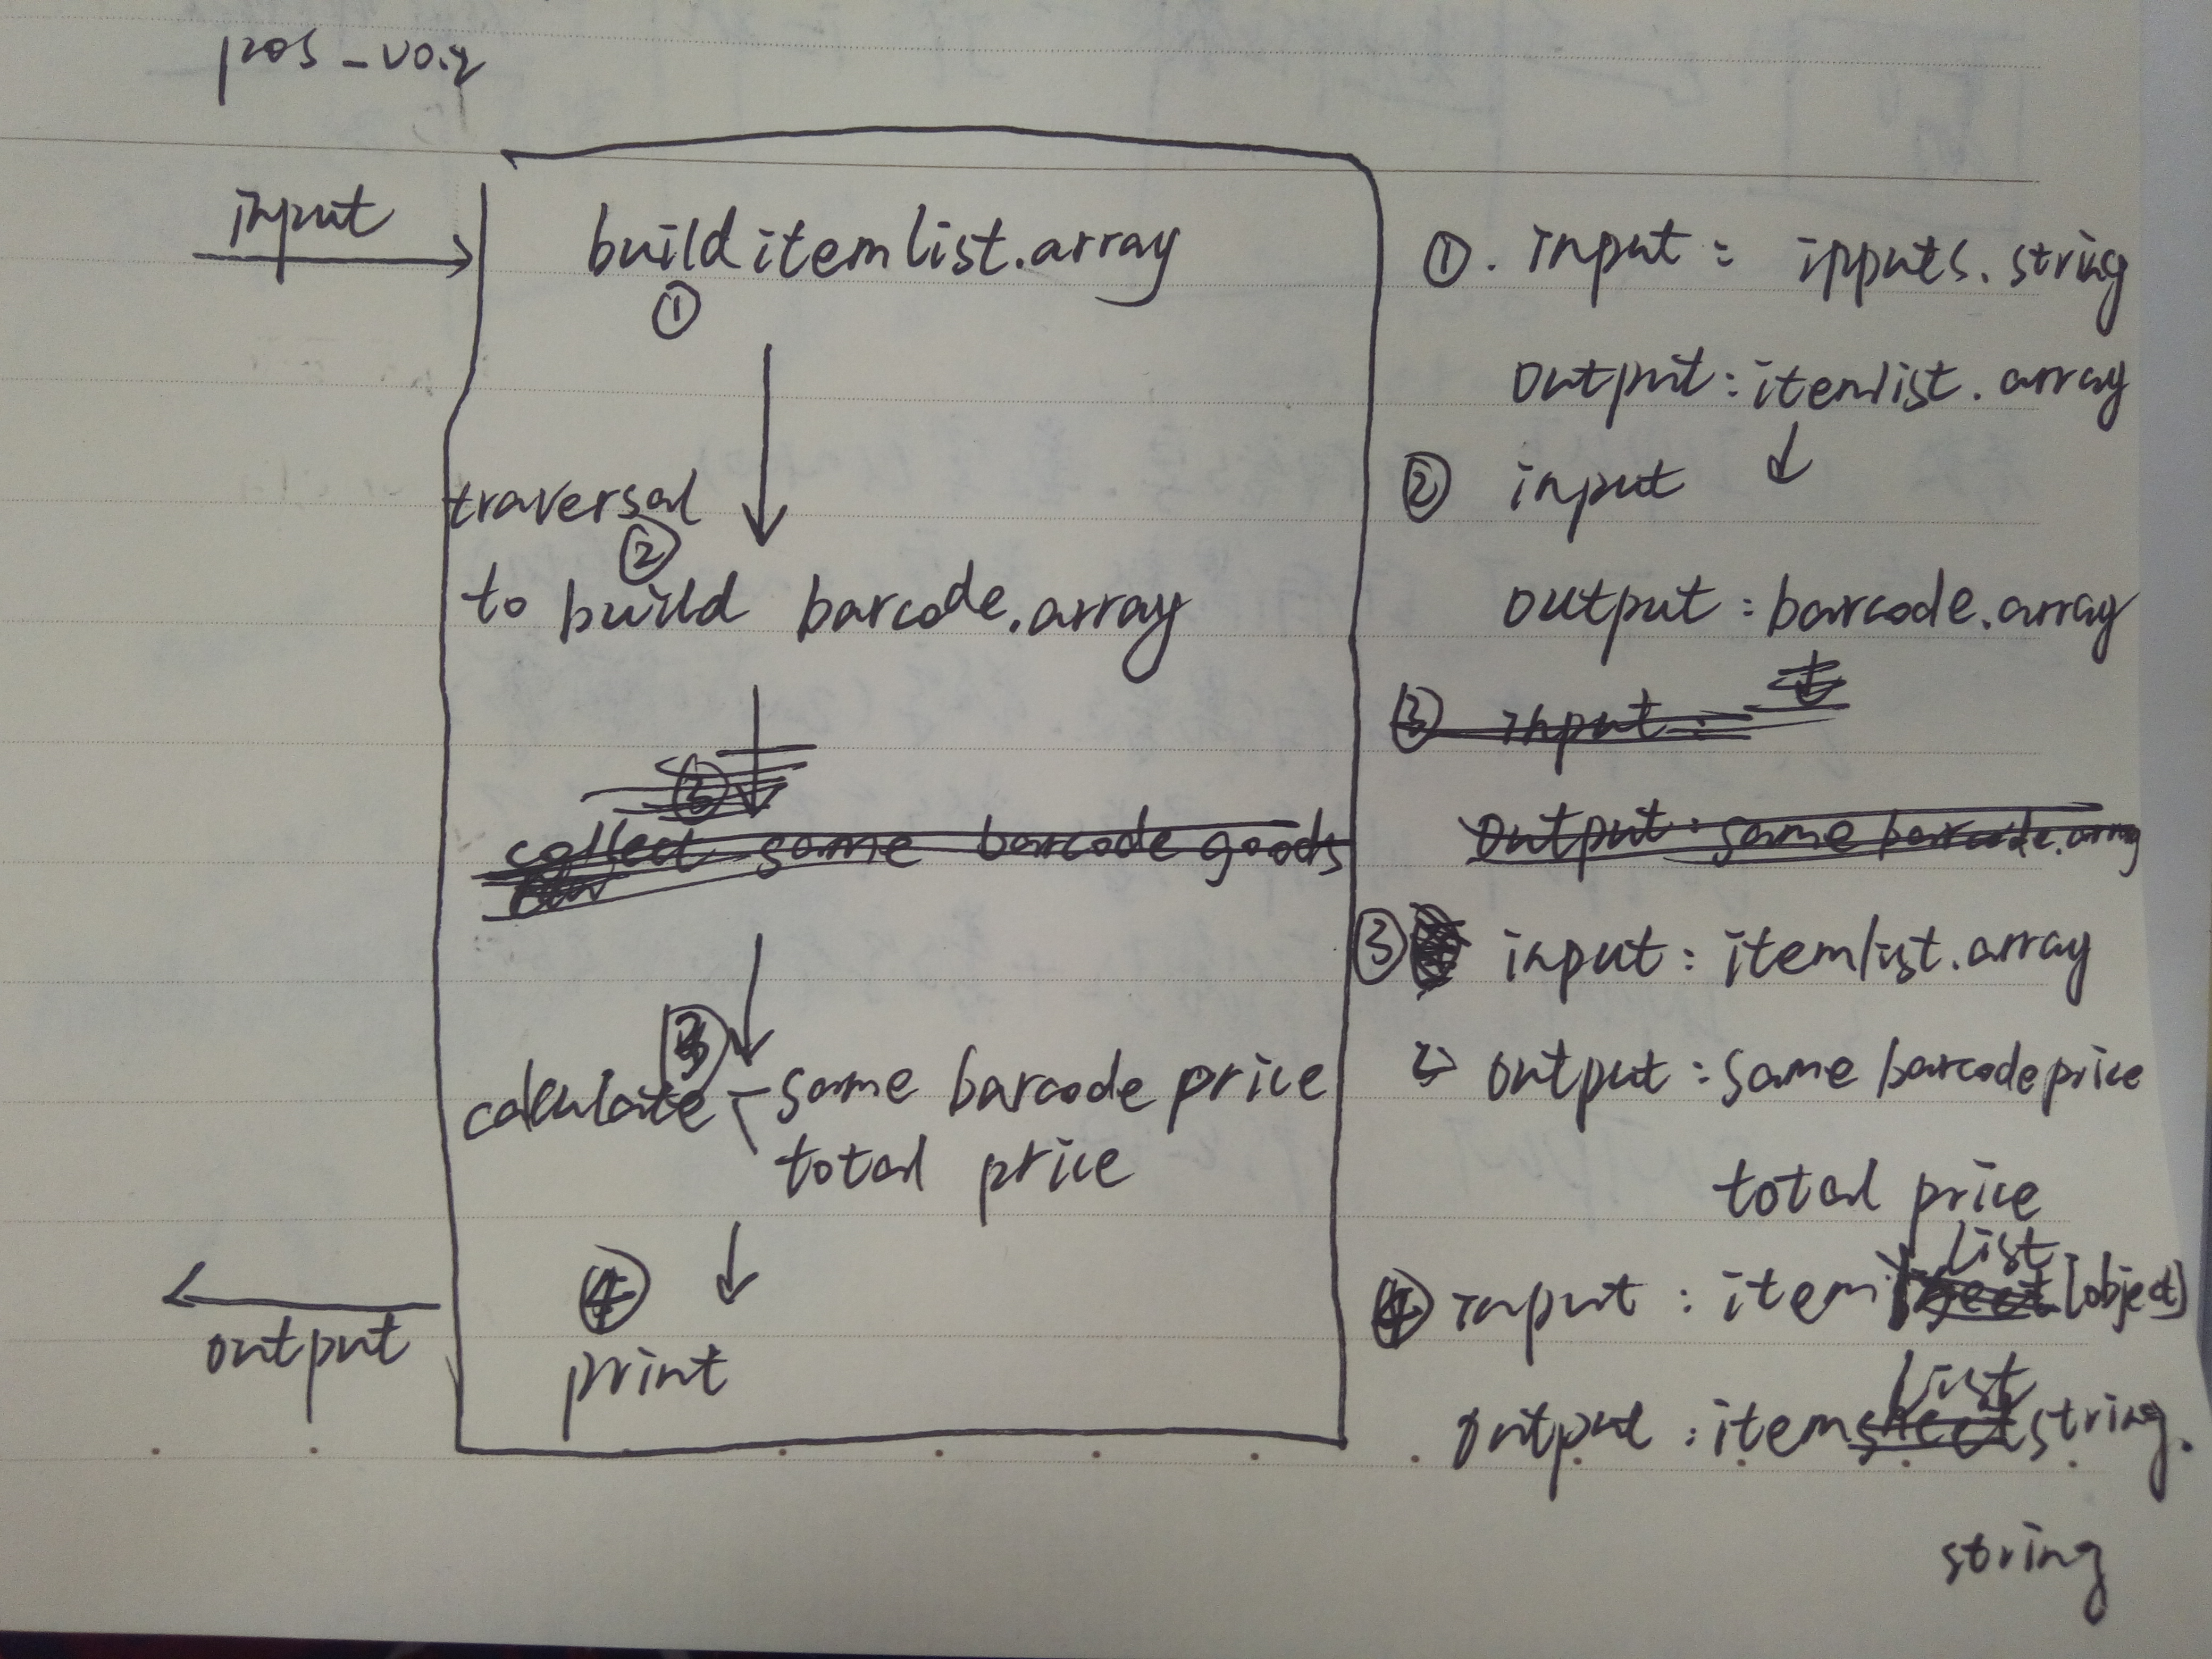 pos_v0.2
input
build itemlist.array
①
traversal
②
to build barcode.array
③
collect same barcode goods
③
calculate same barcode price
total price
④
print
output
①. input: inputs.string
output: itemlist.array
② input ↓
output: barcode.array
③ input:
output: same barcode.array
③ input: itemlist.array
output: same barcode price
total price
④ input: item List [object]
output: item List string.
string